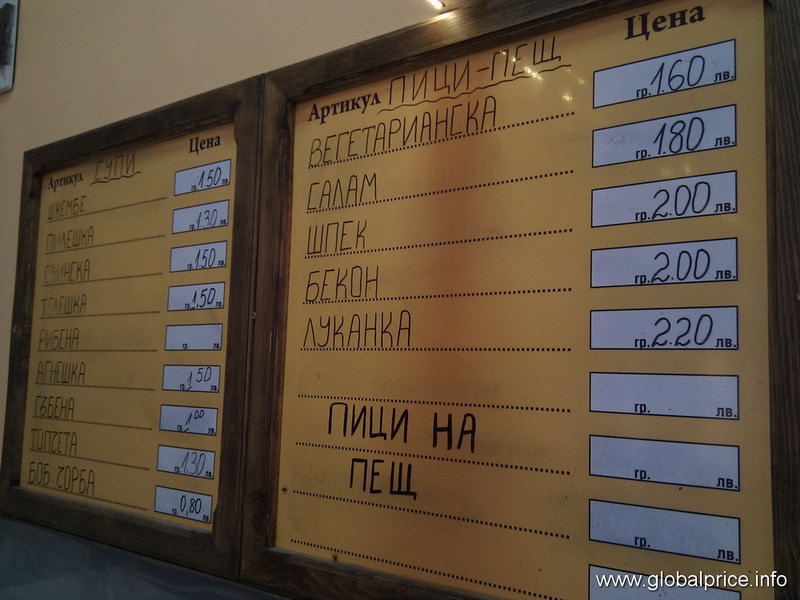 Артикул СУПИ Цена
ШКЕМБЕ гр. 1.50 лв.
ПИЛЕШКА гр. 1.30 лв.
СВИНСКА гр. 1.50 лв.
ТЕЛЕШКА гр. 1.50 лв.
РИБЕНА гр. лв.
АГНЕШКА гр. 1 50 лв.
ГЪБЕНА гр. 1 00 лв.
ТОПЧЕТА гр. 1.30 лв.
БОБ ЧОРБА гр. 0,80 лв.
Артикул ПИЦИ-ПЕЩ Цена
ВЕГЕТАРИАНСКА гр. 1.60 лв.
САЛАМ гр. 1.80 лв.
ШПЕК гр. 2.00 лв.
БЕКОН гр. 2.00 лв.
ЛУКАНКА гр. 2.20 лв.
гр. лв.
ПИЦИ НА гр. лв.
ПЕЩ гр. лв.
www.globalprice.info